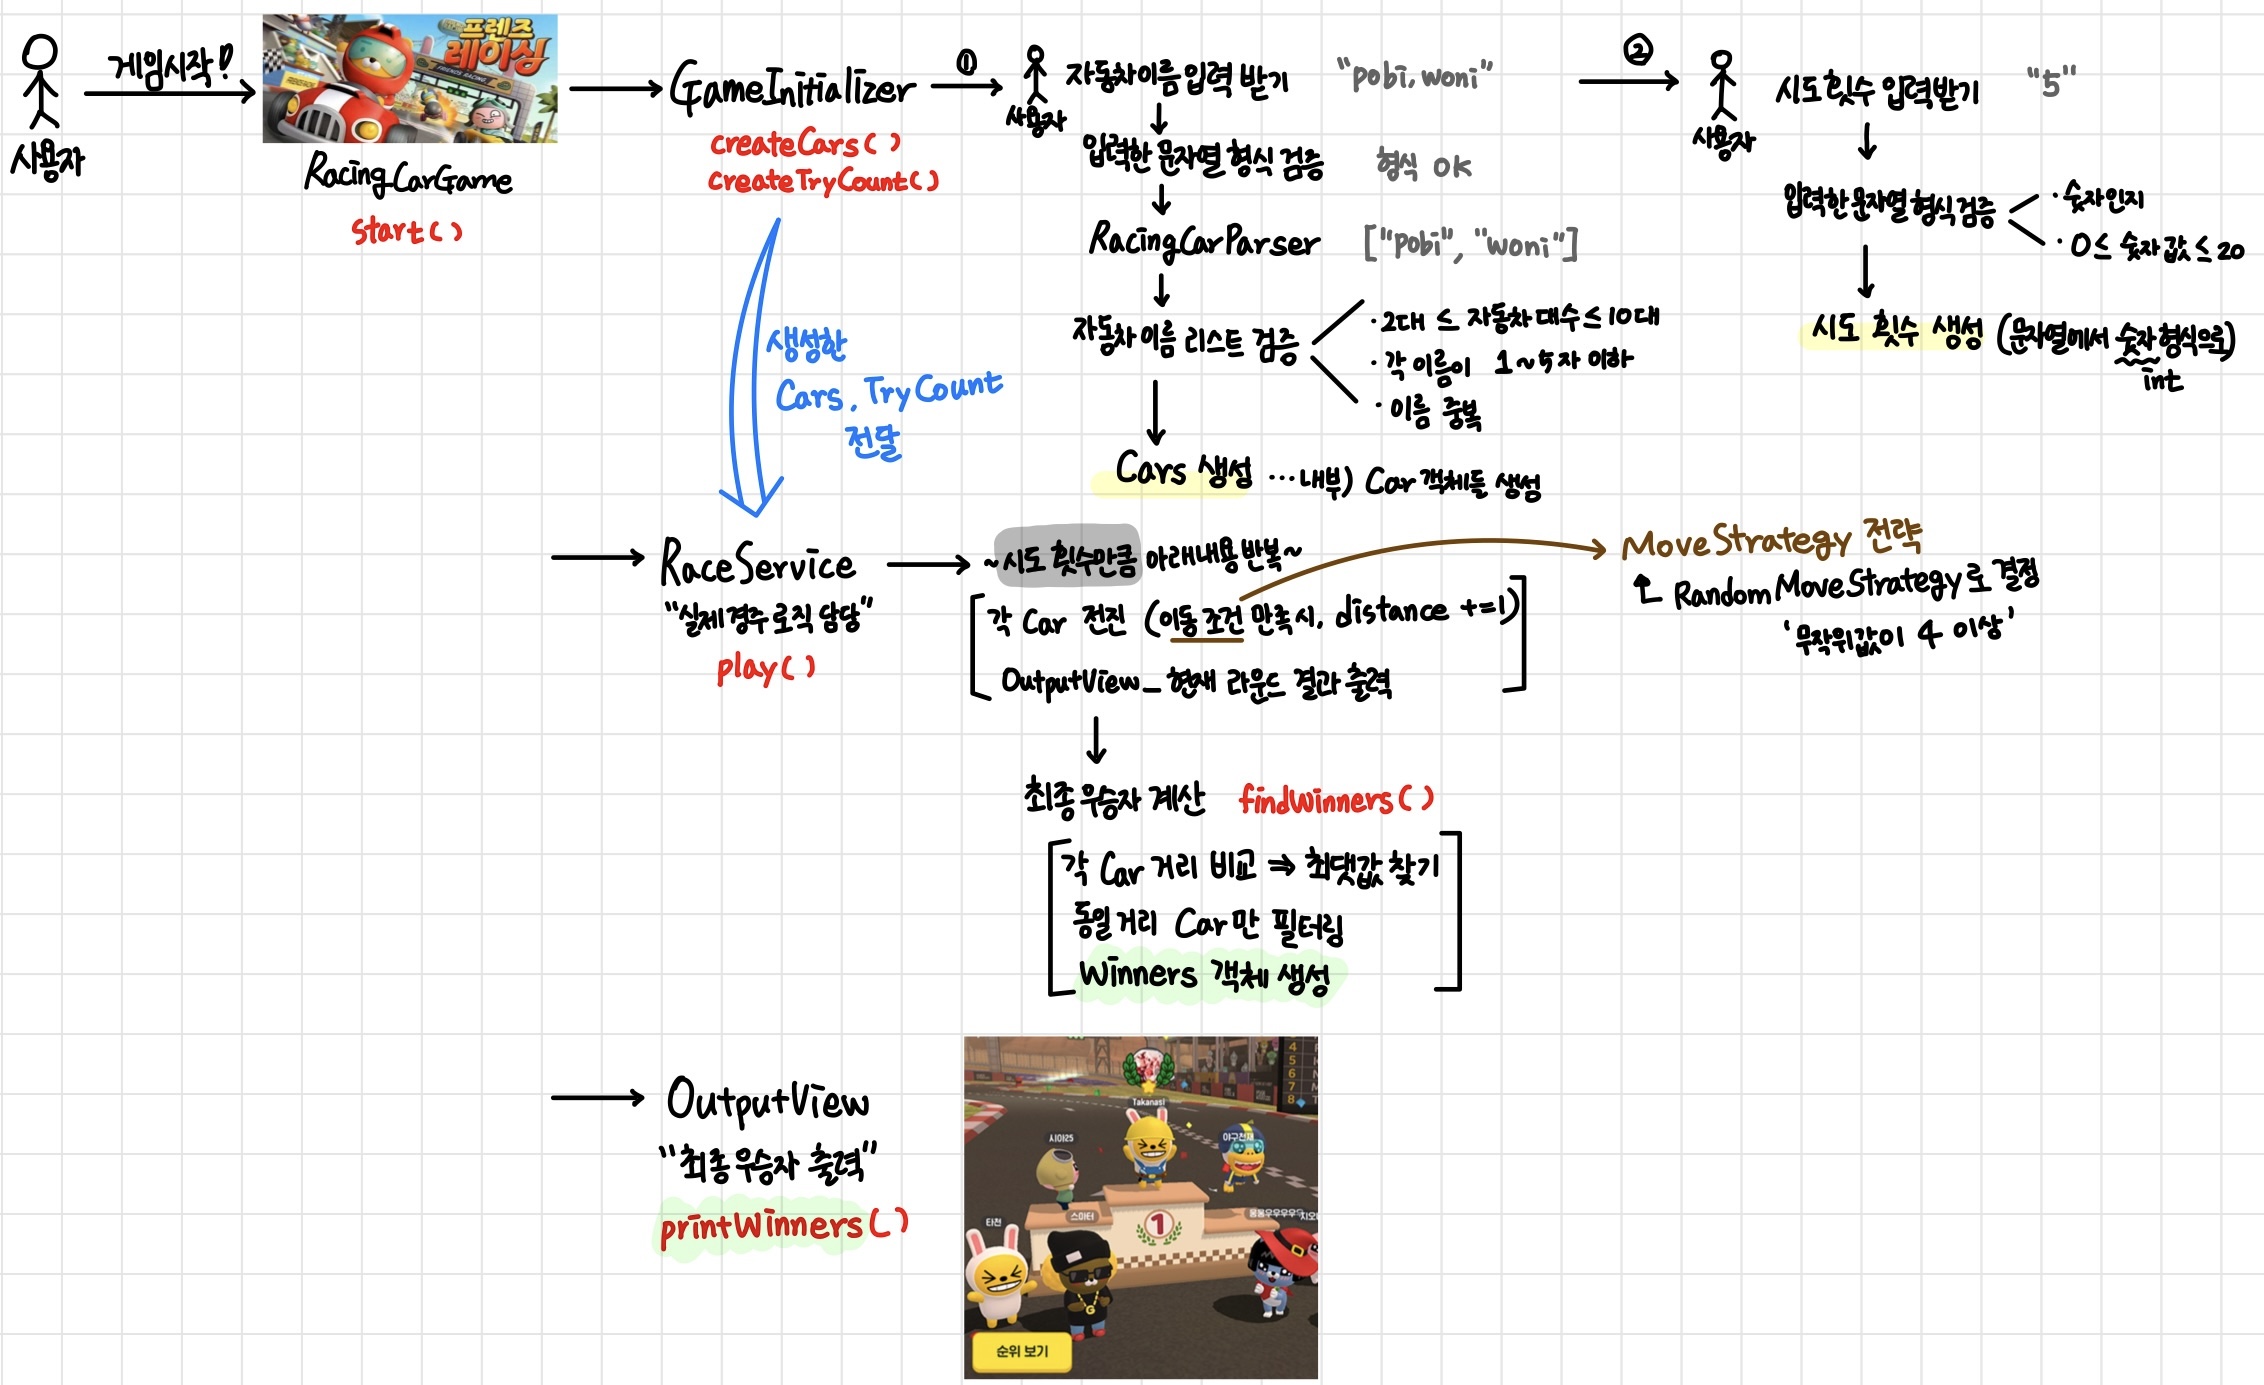 사용자
게임시작!
프렌즈
레이싱
FRIENDS RACING
RacingCarGame
start()
GameInitializer
createCars()
createTryCount()
①
사용자
자동차이름 입력 받기 "pobi, woni"
입력한 문자열 형식 검증 형식 OK
RacingCarParser ["pobi", "woni"]
자동차 이름 리스트 검증
· 2대 ≤ 자동차 대수 ≤ 10대
· 각 이름이 1~5자 이하
· 이름 중복
Cars 생성 ...내부) Car 객체들 생성
②
사용자
시도 횟수 입력받기 "5"
입력한 문자열 형식 검증
· 숫자인지
· 0 ≤ 숫자 값 ≤ 20
시도 횟수 생성 (문자열에서 숫자 형식으로)
int
생성한
Cars, TryCount
전달
RaceService
"실제 경주 로직 담당"
play()
~시도 횟수만큼 아래 내용 반복~
각 Car 전진 (이동 조건 만족시, distance +=1)
OutputView_ 현재 라운드 결과 출력
MoveStrategy 전략
RandomMoveStrategy로 결정
'무작위값이 4 이상'
최종 우승자 계산 findWinners()
각 Car 거리 비교 ⇒ 최댓값 찾기
동일 거리 Car만 필터링
Winners 객체 생성
OutputView
"최종 우승자 출력"
printWinners()
4
5
6
7
8
Takanasi
시아25
야구천재
타천
스마터
1
G
순위 보기